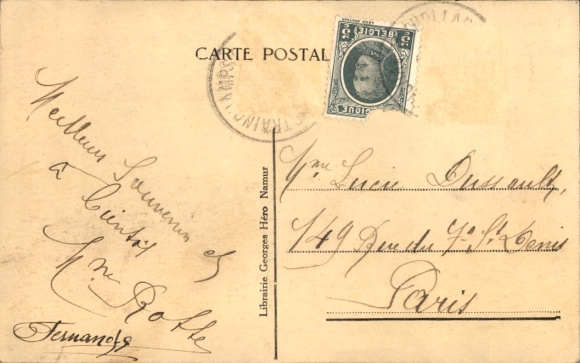 CARTE POSTAL
BELGIE
Meilleur Souvenir et
à bientôt
Mme Rotte
Fernande
Librairie Georges Héro Namur
Mme Lucie Dussault,
149 Rue du Fg St Denis
Paris